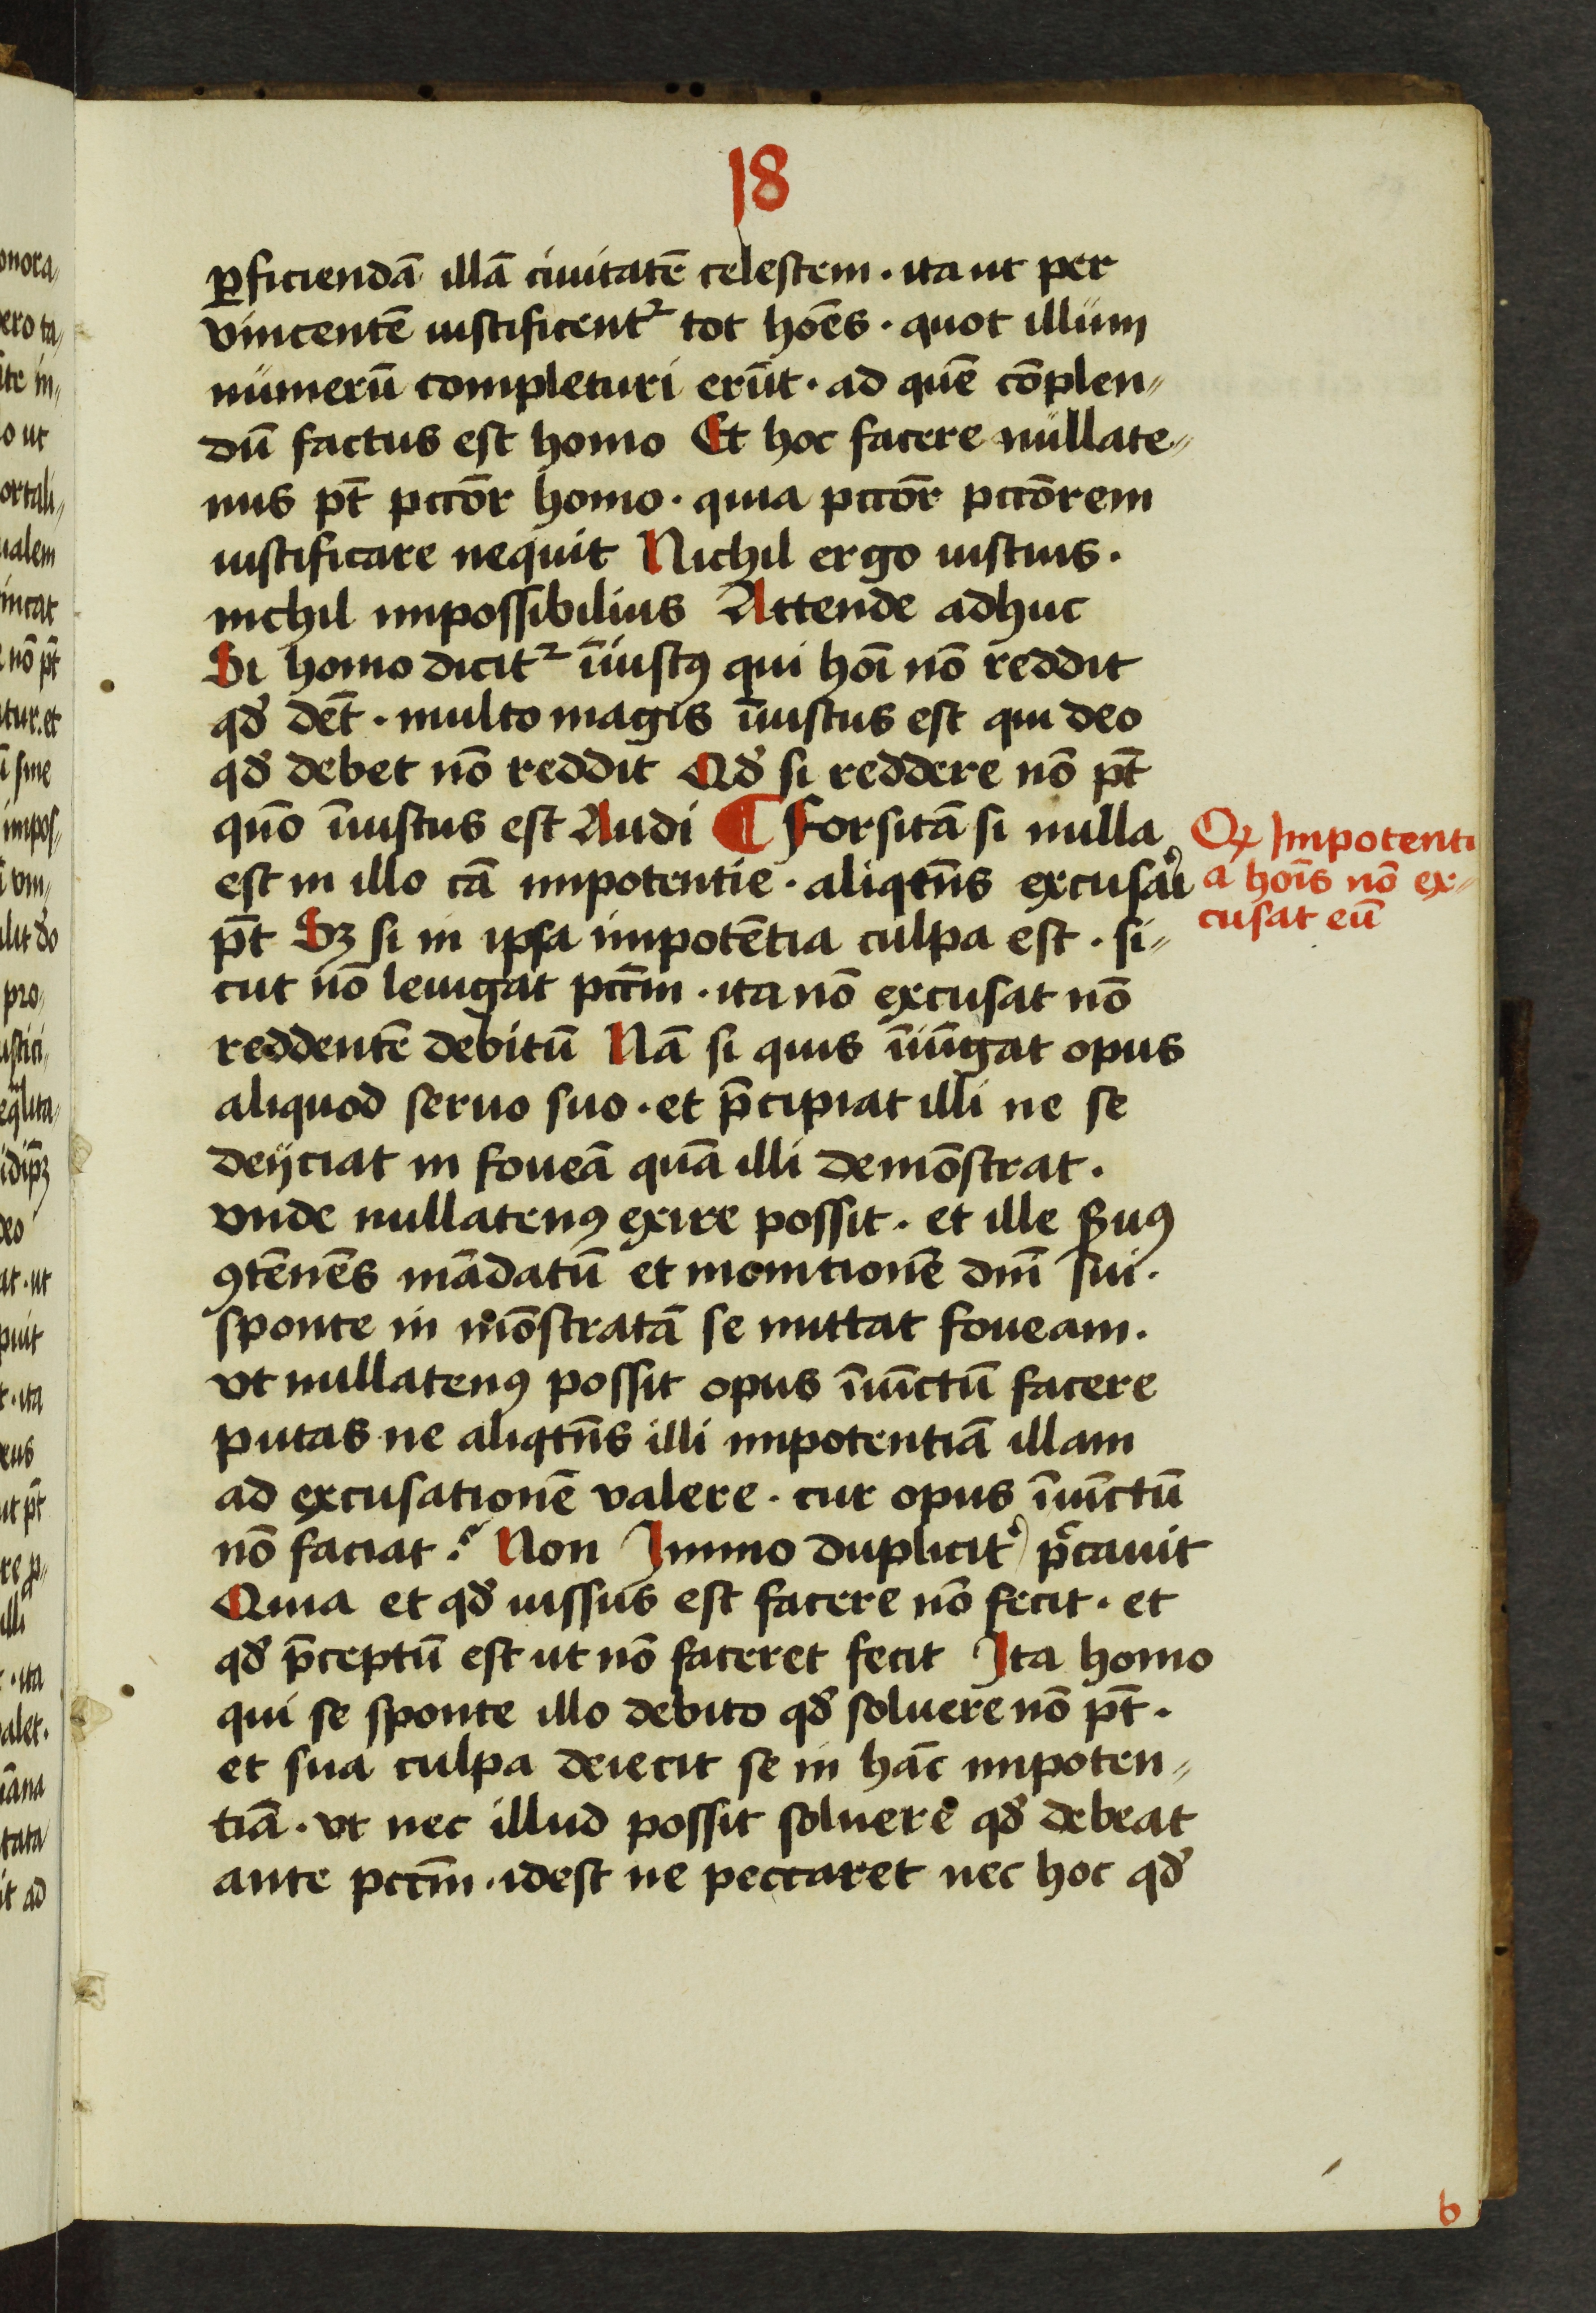 18
ꝑficiendā illā ciuitatē celestem · ita ut per
vincentē iustificentꝛ tot hoēs · quot illum
numerū completuri erūt · ad quē cōplen〃
dū factus est homo Et hoc facere nullate〃
nus pt̄ pctōr homo · quia pctōr pctōrem
iustificare nequit Nichil ergo iustius ·
nichil impossibilius Attende adhuc
Si homo dicitꝛ īiustꝰ qui hoī nō reddit
qd̕ det̄ · multo magis īiustus est qui deo
qd̕ debet nō reddit Qd̕ si reddere nō pt̄
quō īiustus est Audi ¶ Forsitā si nulla
est in illo cā impotentie · aliqtn̄s excusari
pt̄ Sꝫ si in ipsa impotētia culpa est · si〃
cut nō leuigat pctm̄ · ita nō excusat nō
reddentē debitū Nā si quis īiūgat opus
aliquod seruo suo · et p̄cipiat illi ne se
deijciat in foueā quā illi demōstrat ·
vnde nullatenꝰ exire possit · et ille s̄uꝰ
ꝯtēnēs mādatū et monitionē dnī sui ·
sponte in mōstratā se mittat foueam ·
vt nullatenꝰ possit opus īiūctū facere
putas ne aliqtn̄s illi impotentiā illam
ad excusationē valere · cur opus īiūctū
nō faciat ? Non Immo duplicit̕ p̄cauit
Quia et qd̕ iussus est facere nō fecit · et
qd̕ p̄ceptū est ut nō faceret fecit Ita homo
qui se sponte illo debito qd̕ soluere nō pt̄ ·
et sua culpa deiecit se in hāc impoten〃
tiā · vt nec illud possit soluere qd̕ debeat
ante pctm̄ · idest ne peccaret nec hoc qd̕
Qꝫ Impotenti
a hoīs nō ex〃
cusat eū
b